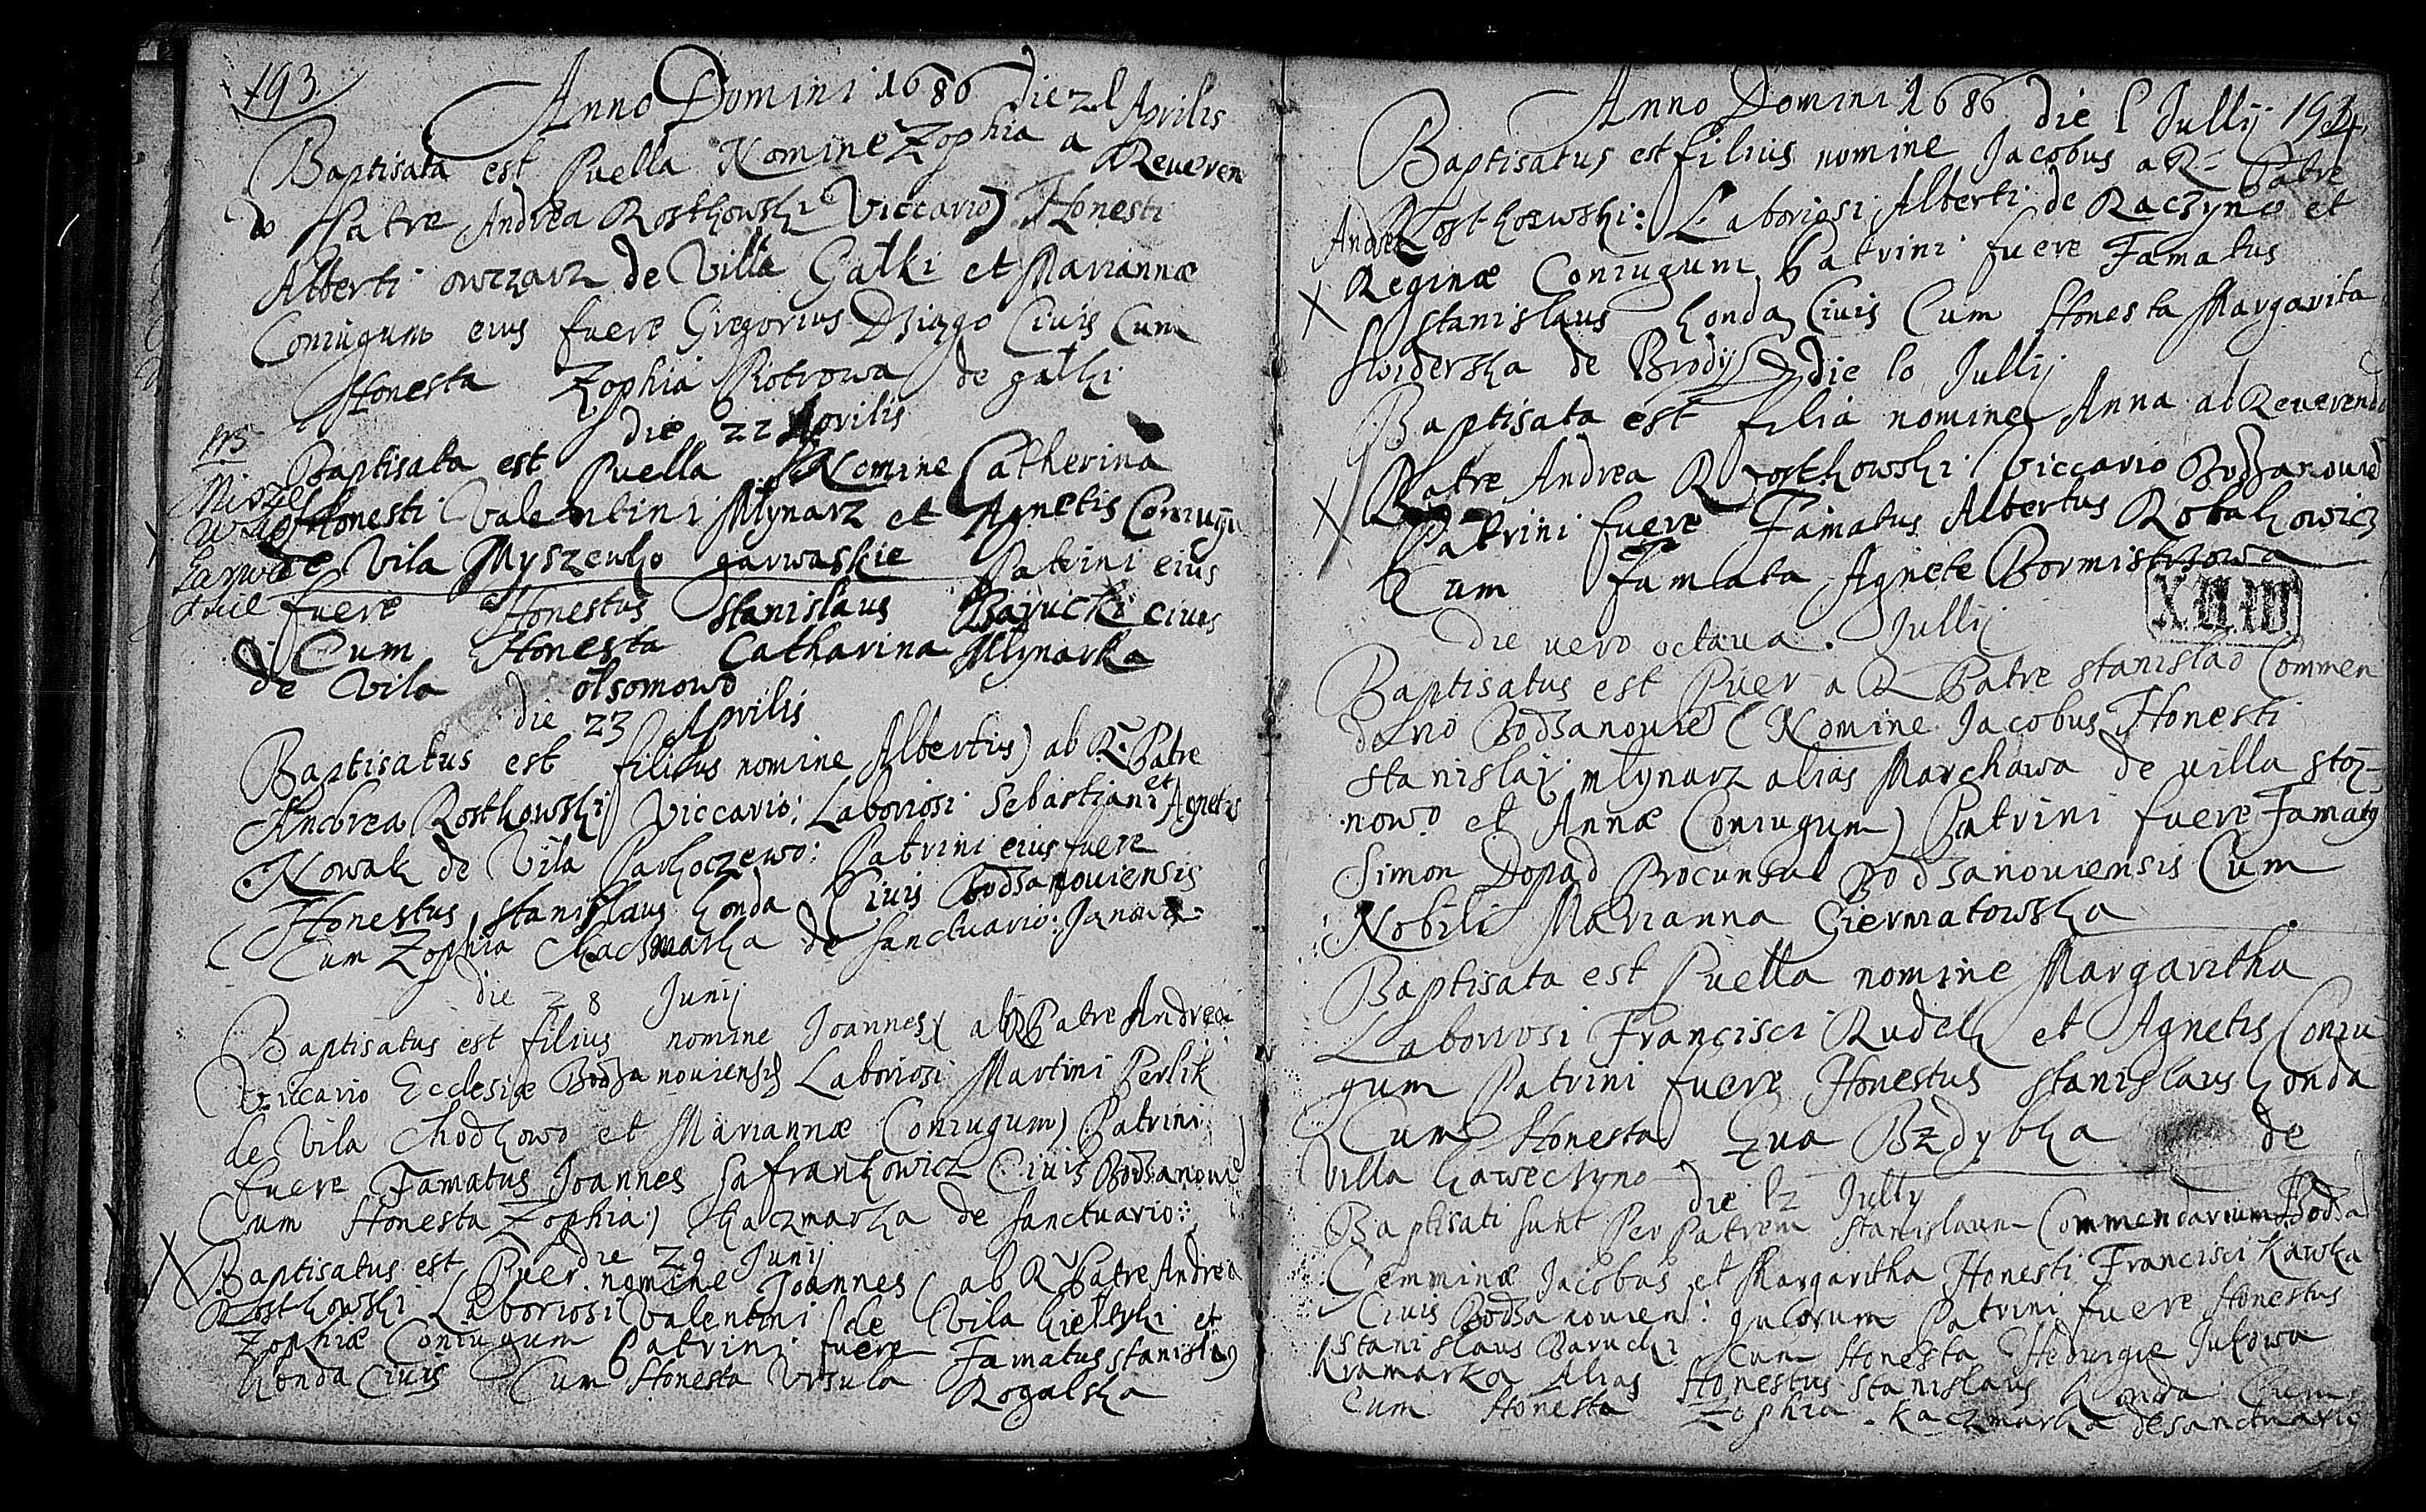 193
Anno Domini 1686 die 21 Aprilis
Baptisata est Puella Nomine Zophia a Reveren
do Patre Andrea Rostkowski Viccario) Honesti
Alberti owczarz de Villa Gałki et Mariannæ
Coniugum eius fuere Gregorius Civis Cum
Honesta Zophia Piotrowa de gałki
die 22 Aprilis
Baptisata est Puella Nomine Catherina
Honesti Valentini Młynarz et Agnetis Coniugu
de Vila Myszenko garwaskie Patrini eius
fuere Honestus Stanislaus Barucki civis
Cum Honesta Catharina Młynarka
de Vila
die 23 Aprilis
Baptisatus est filius nomine Albertus) ab R. Patre
Andrea Rostkowski) Viccario: Laboriosi Sebastiani et Agnetis
Nowak de Vila Parkoczewo: Patrini eius fuere
Honestus Stanislaus Konda Civis Bodsanoviensis
Cum Zophia Kaczmarka de Sanctuario:
die 28 Junij
Baptisatus est filius nomine Joannes( ab R Patre Andrea
Viccario Ecclesiæ Bodzanoviensis Laboriosi Martini Perlik
de Vila Chodkowo et Mariannæ Coniugum) Patrini
fuere Famatus Joannes Safrankowicz Civis Bodzanovie
Cum Honesta Zophia) Kaczmarka de Sanctuario:
die 29 Junij
Baptisatus est Puer nomine Joannes ( ab R Patre Andrea
Rostkowski Laboriosi Valentini de Vila et
Zophiæ Coniugum Patrini fuere Famatus Stanislaus
Konda Civis Cum Honesta Ursula Rogalska
Anno Domini 1686 die 1 Jullij 194
Baptisatus est filius nomine Jacobus a R Patre
Andrea Rostkowski: Laboriosi Alberti de Raczyno et
Reginæ Coniugum Patrini fuere Famatus
Stanislaus Konda Civis Cum Honesta Margarita
Swiderska de die 10 Jullij
Baptisata est filia nomine Anna ab Reverendo
Patre Andrea Rostkowski Viccario Bodzanovied
Patrini fuere Famatus Albertus Robakowicz
Cum Famata Agnete Bormistrzowa
die vero octava . Jullij
Baptisatus est Puer a R Patre Stanislao Commen
dario Bodzanovie (Nomine Jacobus Honesti
Stanislai młynarz alias Marchawa de villa
nowo et Annæ Coniugum) Patrini fuere Famatus
Simon Dopad Procunsul Bodzanoviensis Cum
Nobili Marianna Giermatowska
Baptisata est Puella nomine Margaritha
Laboriosi Francisci Rudek et Agnetis Coniu
gum Patrini fuere Honestus Stanislaus Konda
Cum Honesta Eva Bzdybka de
Villa Gaweczyno
die 12 Jully
Baptisati sunt Per Patrem Stanislaum Commendarium Bodza
Gemminæ Jacobus et Margaritha Honesti Francisci Kawka
Civis Bodzanovien: quorum Patrini fuere Honestus
Stanislaus Barucki cum Honesta Hedvigie
Kramarka Alias Honestus Stanislaus Konda Cum
Cum Honesta Zophia Kaczmarka de sanctuario